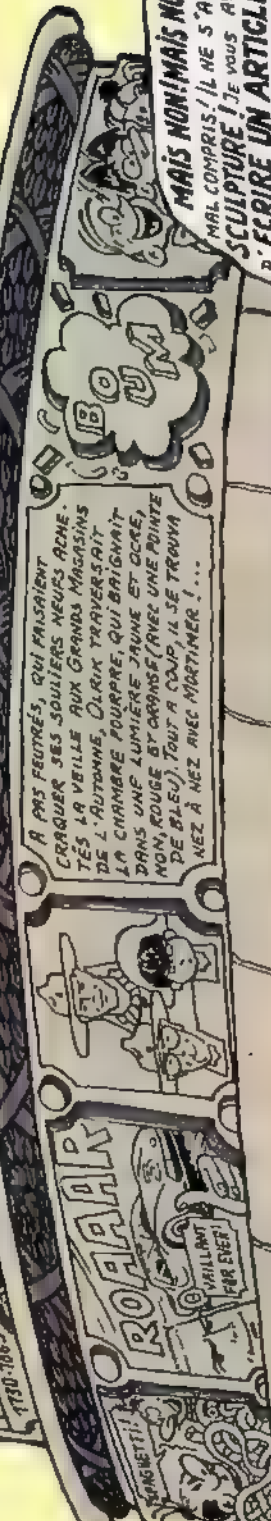 1730-186
SPAGHETTI!
ROAAAR
VAILLANT
FOR EVER!
A PAS FEUTRÉS, QUI FAISAIENT
CRAQUER SES SOULIERS NEUFS ACHE-
TÉS LA VEILLE AUX GRANDS MAGASINS
DE L'AUTOMNE, OLRIK TRAVERSAIT
LA CHAMBRE POURPRE, QUI BAIGNAIT
DANS UNE LUMIÈRE JAUNE ET OCRE,
NON, ROUGE ET ORANGE (AVEC UNE POINTE
DE BLEU). TOUT A COUP, IL SE TROUVA
NEZ À NEZ AVEC MORTIMER!...
BOUM
MAIS NON! MAIS NO
MAL COMPRIS! IL NE S'A
SCULPTURE! JE VOUS A
D'ÉCRIRE UN ARTICLE